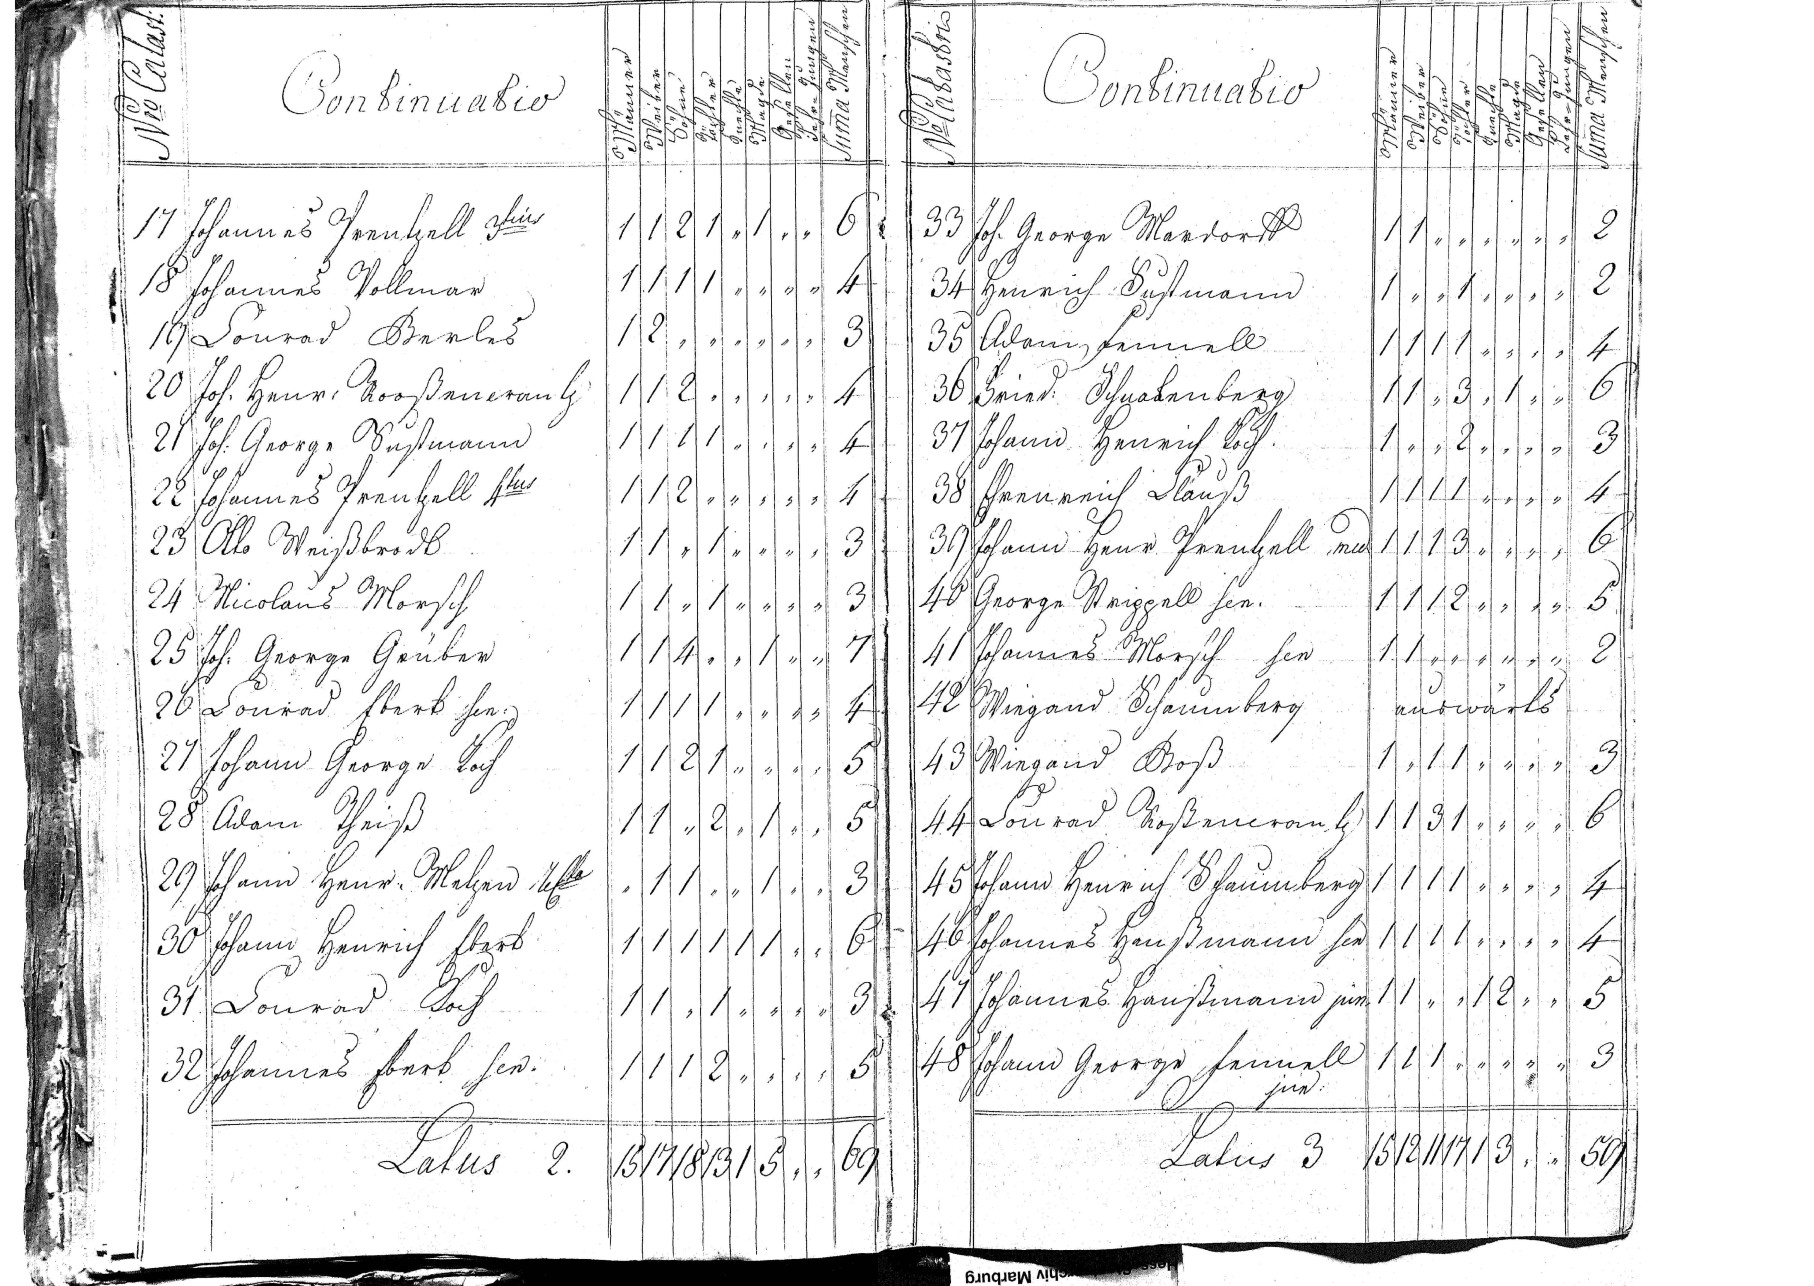 No Catast.
Continuatio
Männer
Weiber
Söhne
Töchter
Knechte
Mägde
Gesellen
Lehr-Jungen
Suma Menschen
17 Johannes Prentzell 3tius 1 1 2 1 „ 1 „ „ 6
18 Johannes Vollmar 1 1 1 1 „ „ „ „ 4
19 Conrad Gerles 1 2 „ „ „ „ „ „ 3
20 Joh. Henr. Rooßencrantz 1 1 2 „ „ „ „ „ 4
21 Joh. George Sustmann 1 1 1 1 „ „ „ „ 4
22 Johannes Prentzell 4tus 1 1 2 „ „ „ „ „ 4
23 Otto Weißbrodt 1 1 „ 1 „ „ „ „ 3
24 Nicolaus Morsch 1 1 „ 1 „ „ „ „ 3
25 Joh. George Grüber 1 1 4 „ „ 1 „ „ 7
26 Conrad Ebert sen. 1 1 1 1 „ „ „ „ 4
27 Johann George Koch 1 1 2 1 „ „ „ „ 5
28 Adam Theiß 1 1 „ 2 „ 1 „ „ 5
29 Johann Henr. Metzen „ 1 1 „ „ 1 „ „ 3
30 Johann Henrich Ebert 1 1 1 1 1 1 „ „ 6
31 Conrad Koch 1 1 „ 1 „ „ „ „ 3
32 Johannes Ebert sen. 1 1 1 2 „ „ „ „ 5
Latus 2. 15 17 18 13 1 5 „ „ 69
No Catastri
Continuatio
Männer
Weiber
Söhne
Töchter
Knechte
Mägde
Gesellen
Lehr-Jungen
Suma Menschen
33 Joh. George Mardorff 1 1 „ „ „ „ „ „ 2
34 Henrich Sustmann 1 „ „ 1 „ „ „ „ 2
35 Adam Fennell 1 1 1 1 „ „ „ „ 4
36 Fried. Schnatenberg 1 1 „ 3 „ 1 „ „ 6
37 Johann Henrich Koch. 1 „ „ 2 „ „ „ „ 3
38 Ehrenreich Clauß 1 1 1 1 „ „ „ „ 4
39 Johann Henr Prentzell 1 1 1 3 „ „ „ „ 6
40 George Strippell sen. 1 1 1 2 „ „ „ „ 5
41 Johannes Morsch sen 1 1 „ „ „ „ „ „ 2
42 Wiegand Schaumberg auswärts
43 Wiegand Boß 1 „ 1 1 „ „ „ „ 3
44 Conrad Roßencrantz 1 1 3 1 „ „ „ „ 6
45 Johann Henrich Schaumberg 1 1 1 1 „ „ „ „ 4
46 Johannes Hanßmann sen 1 1 1 1 „ „ „ „ 4
47 Johannes Hanßmann jun 1 1 „ „ 1 2 „ „ 5
48 Johann George Fennell 1 1 1 „ „ „ „ „ 3
jun.
Latus 3 15 12 11 17 1 3 „ „ 59
hiv Marburg